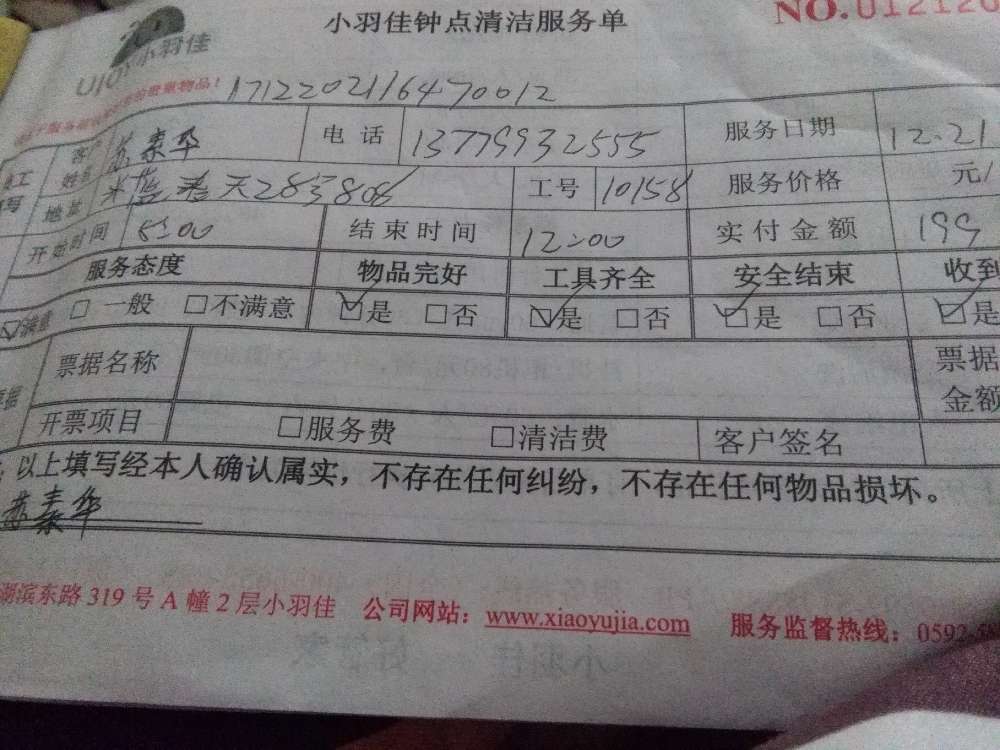 小羽佳钟点清洁服务单 NO.012120
UJOY小羽佳
171220211647 0012
客户姓名 苏素华 电话 13779932555 服务日期 12.21
地址 天28号806 工号 10158 服务价格 元/
开始时间 8:00 结束时间 12:00 实付金额 199
服务态度 物品完好 工具齐全 安全结束 收到
☑满意 □一般 □不满意 ☑是 □否 ☑是 □否 ☑是 □否 ☑是
票据名称 票据金额
开票项目 □服务费 □清洁费 客户签名
以上填写经本人确认属实，不存在任何纠纷，不存在任何物品损坏。
苏素华
湖滨东路 319 号 A 幢 2 层小羽佳 公司网站：www.xiaoyujia.com 服务监督热线：0592-5